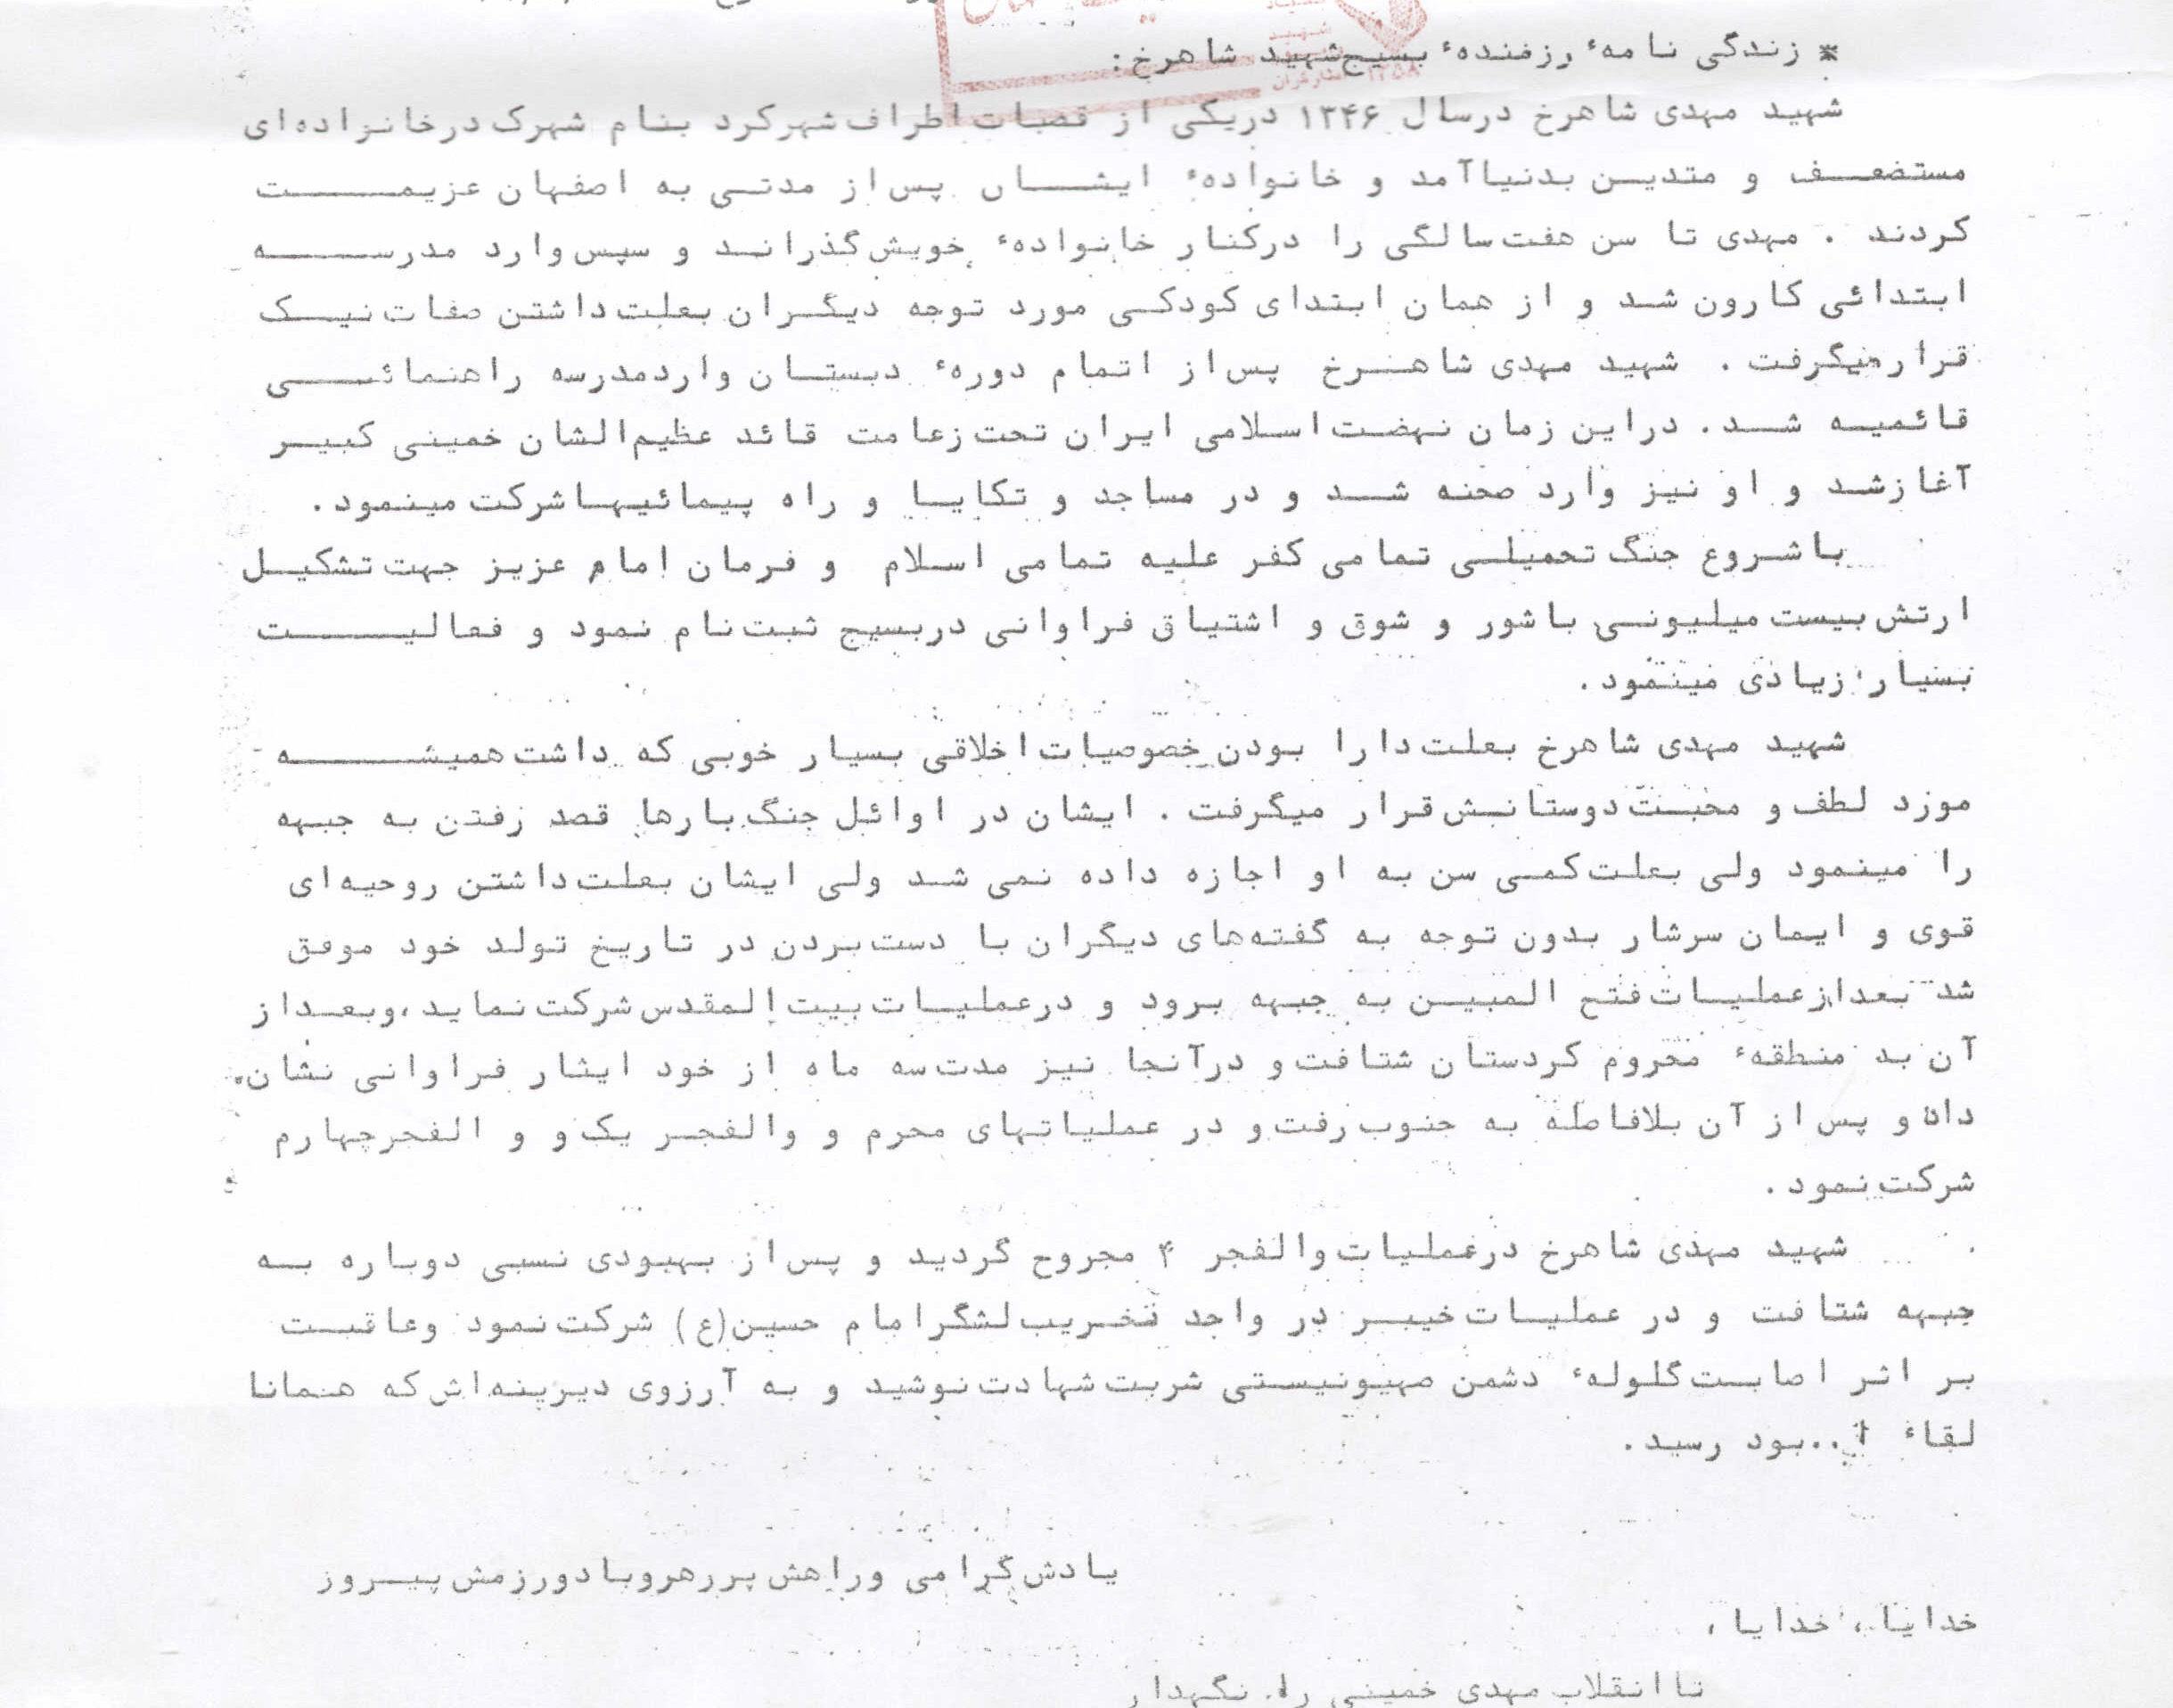 * زندگی نامهٔ رزمندهٔ بسیج شهید شاهرخ:
شهید مهدی شاهرخ درسال ۱۳۴۶ دریکی از قصبات اطراف شهرکرد بنام شهرک درخانواده‌ای
مستضعف و متدین بدنیاآمد و خانوادهٔ ایشان پس‌از مدتی به اصفهان عزیمت
کردند . مهدی تا سن هفت‌سالگی را درکنار خانوادهٔ خویش‌گذراند و سپس‌وارد مدرسه
ابتدائی کارون شد و از همان ابتدای کودکی مورد توجه دیگران بعلت‌داشتن صفات‌نیک
قرارمیگرفت . شهید مهدی شاهرخ پس‌از اتمام دورهٔ دبستان واردمدرسه راهنمائی
قائمیه شد. دراین زمان نهضت‌اسلامی ایران تحت‌زعامت قائد عظیم‌الشان خمینی کبیر
آغازشد و او نیز وارد صحنه شد و در مساجد و تکایا و راه پیمائیهاشرکت‌مینمود.
باشروع جنگ‌تحمیلی تمامی کفر علیه تمامی اسلام و فرمان امام عزیز جهت‌تشکیل
ارتش‌بیست‌میلیونی باشور و شوق و اشتیاق فراوانی دربسیج ثبت‌نام نمود و فعالیت
بسیار زیادی مینمود.
شهید مهدی شاهرخ بعلت‌دارا بودن خصوصیات‌اخلاقی بسیار خوبی که داشت‌همیشه
مورد لطف و محبت‌دوستانش‌قرار میگرفت . ایشان در اوائل جنگ‌بارها قصد رفتن به جبهه
را مینمود ولی بعلت‌کمی سن به او اجازه داده نمی شد ولی ایشان بعلت‌داشتن روحیه‌ای
قوی و ایمان سرشار بدون توجه به گفته‌های دیگران با دست‌بردن در تاریخ تولد خود موفق
شد بعدازعملیات‌فتح المبین به جبهه برود و درعملیات‌بیت‌المقدس‌شرکت‌نماید،وبعداز
آن به منطقهٔ محروم کردستان شتافت‌و درآنجا نیز مدت‌سه ماه از خود ایثار فراوانی نشان
داد و پس‌از آن بلافاصله به جنوب‌رفت‌و در عملیاتهای محرم و والفجر یک‌و و الفجرچهارم
شرکت‌نمود.
شهید مهدی شاهرخ درعملیات‌والفجر ۴ مجروح گردید و پس‌از بهبودی نسبی دوباره به
جبهه شتافت و در عملیات‌خیبر در واحد تخریب‌لشگرامام حسین(ع) شرکت‌نمود وعاقبت
بر اثر اصابت‌گلولهٔ دشمن صهیونیستی شربت‌شهادت‌نوشید و به آرزوی دیرینه‌اش‌که همانا
لقاء ا..بود رسید.
یادش‌گرامی وراهش‌پررهروبادورزمش‌پیروز
خدایا، خدایا،
تاانقلاب‌مهدی خمینی را نگهدار